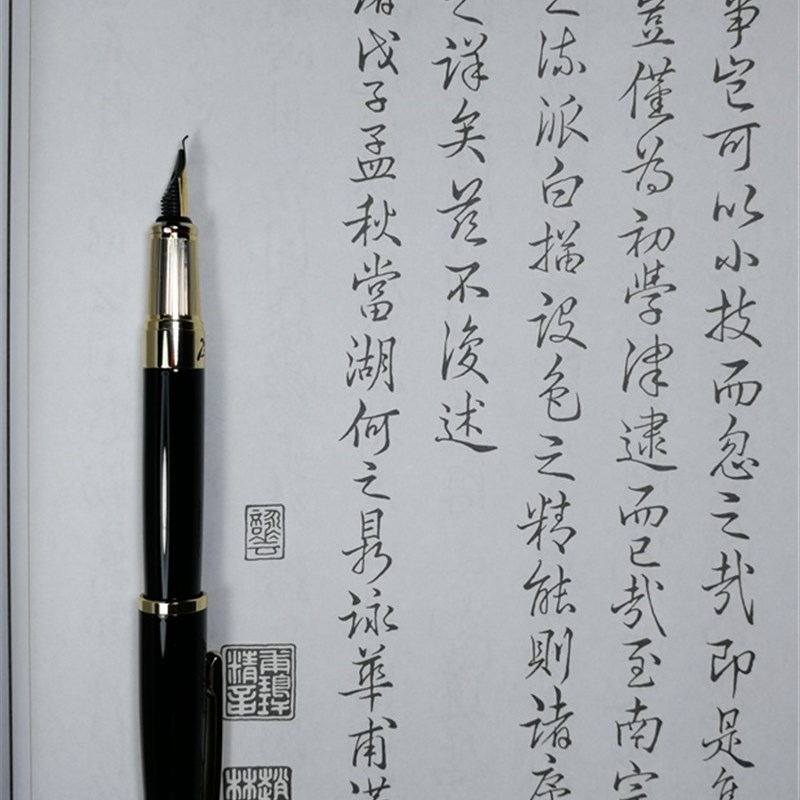 事豈可以小技而忽之哉即是集
豈僅為初學津逮而已哉至南宗
之流派白描設色之精能則諸序
之詳矣茲不復述
戊子孟秋當湖何之鼎詠華甫
詠華